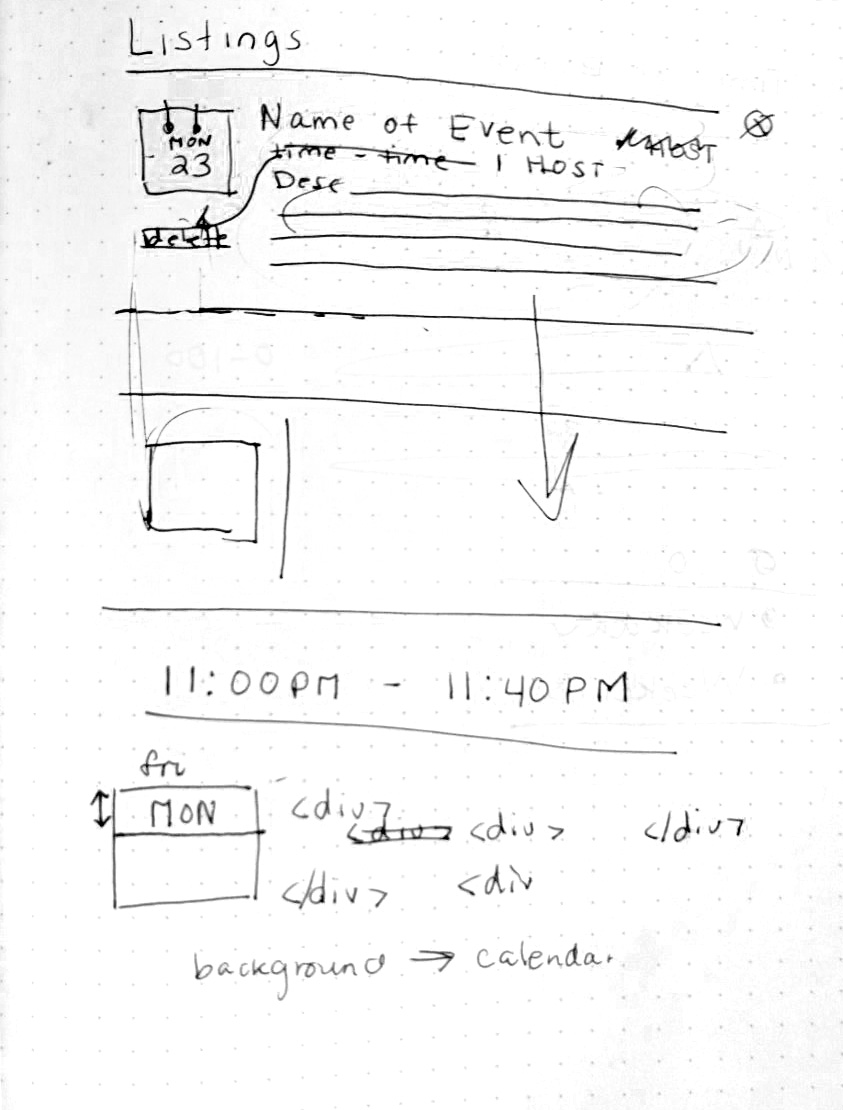 Listings
Name of Event HOST
MON
23
time - time | HOST
Desc
delete
11:00PM - 11:40PM
fri
MON
<div>
<div> <div> </div>
</div> <div
background → calendar